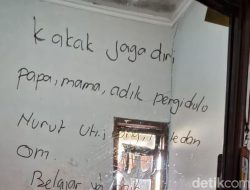 kakak jaga diri
papa, mama, adik pergi dulo
Nurut Uti
dan
om.
Belajar
detikcom